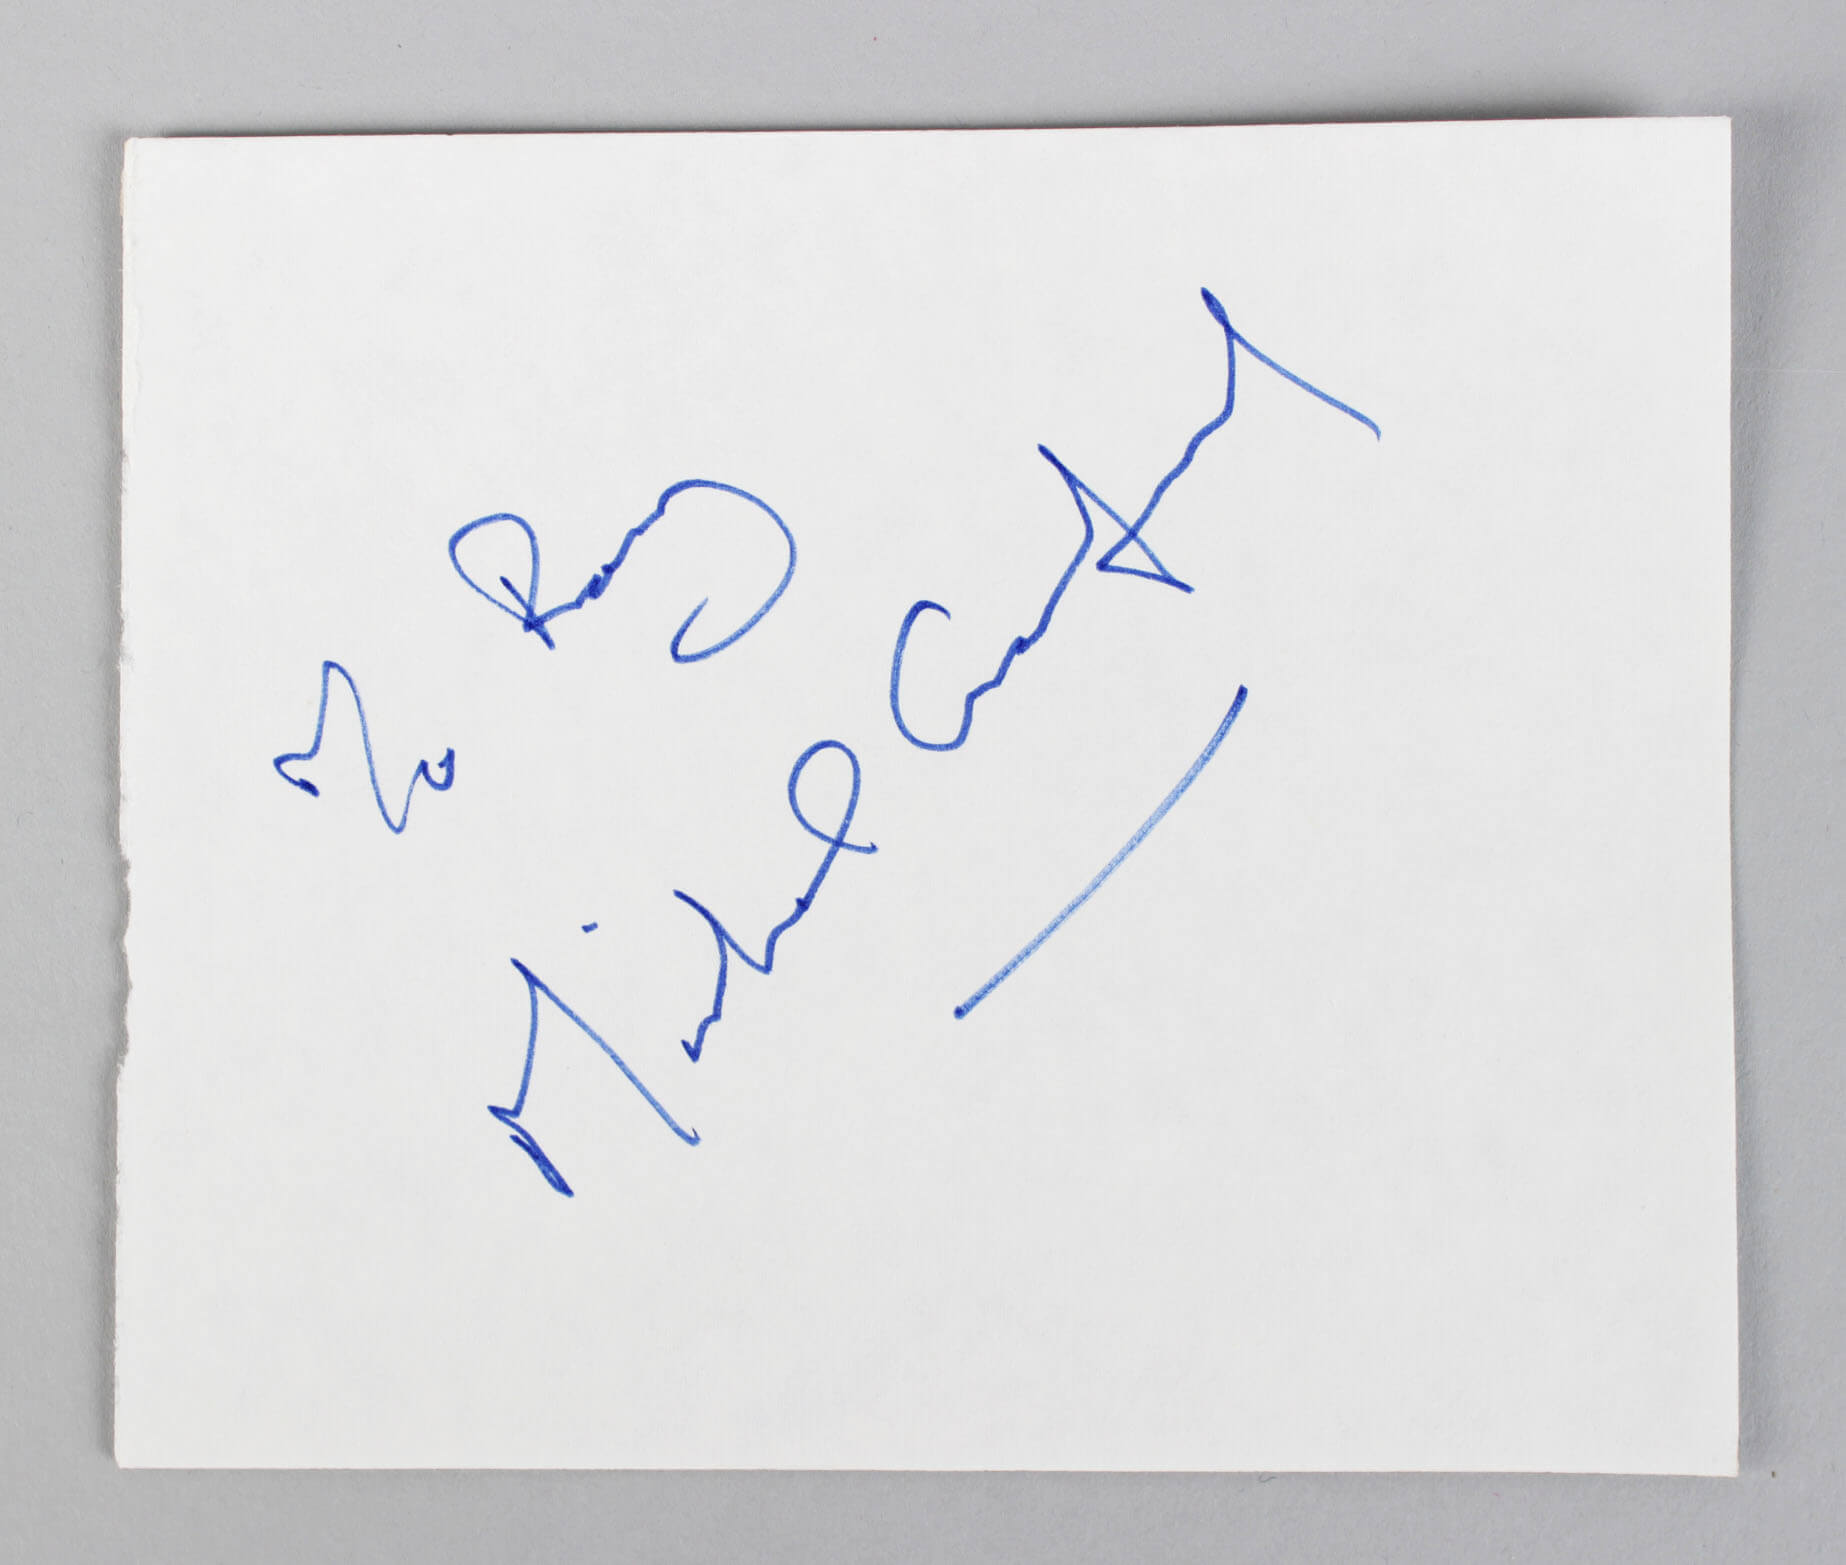 To Roy
Michael Crawford